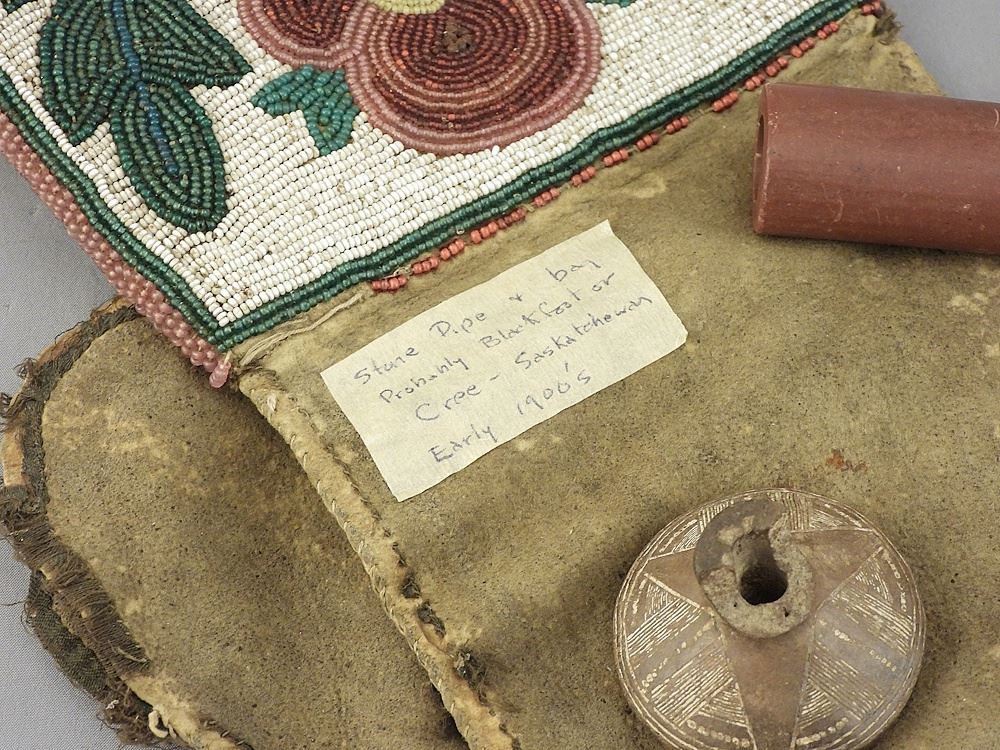 Stone Pipe & bag
Probably Blackfoot or
Cree - Saskatchewan
Early 1900's